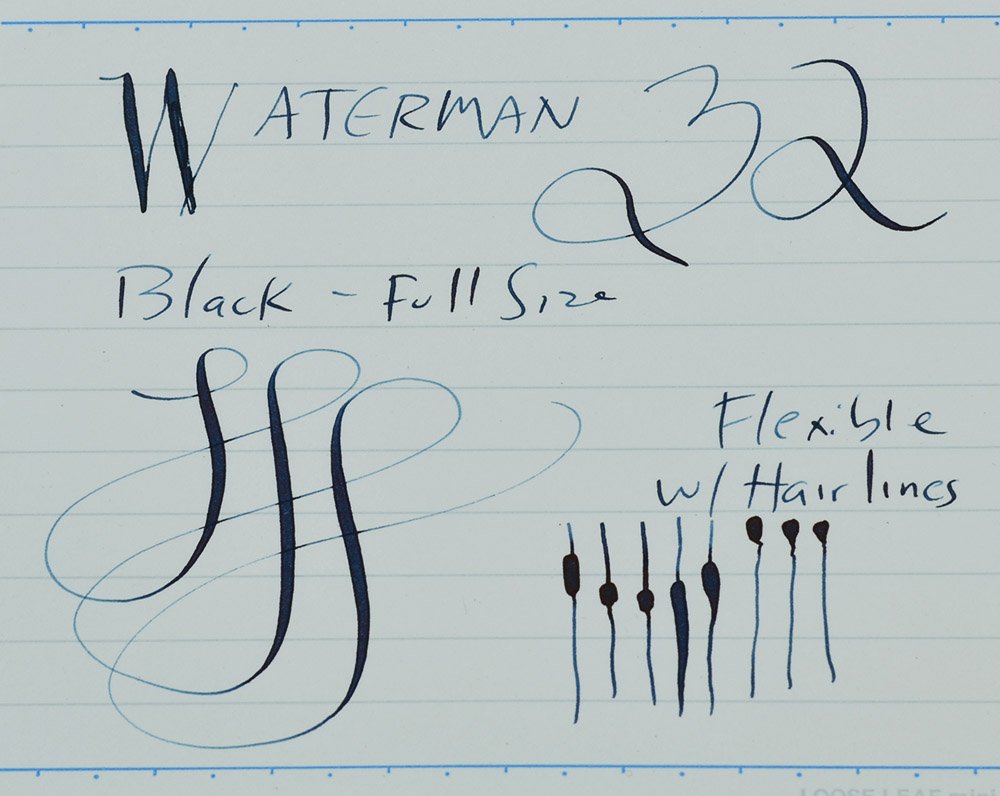 WATERMAN 32
Black - Full Size
Flexible
w/ Hairlines
LOOSE LEAF mini